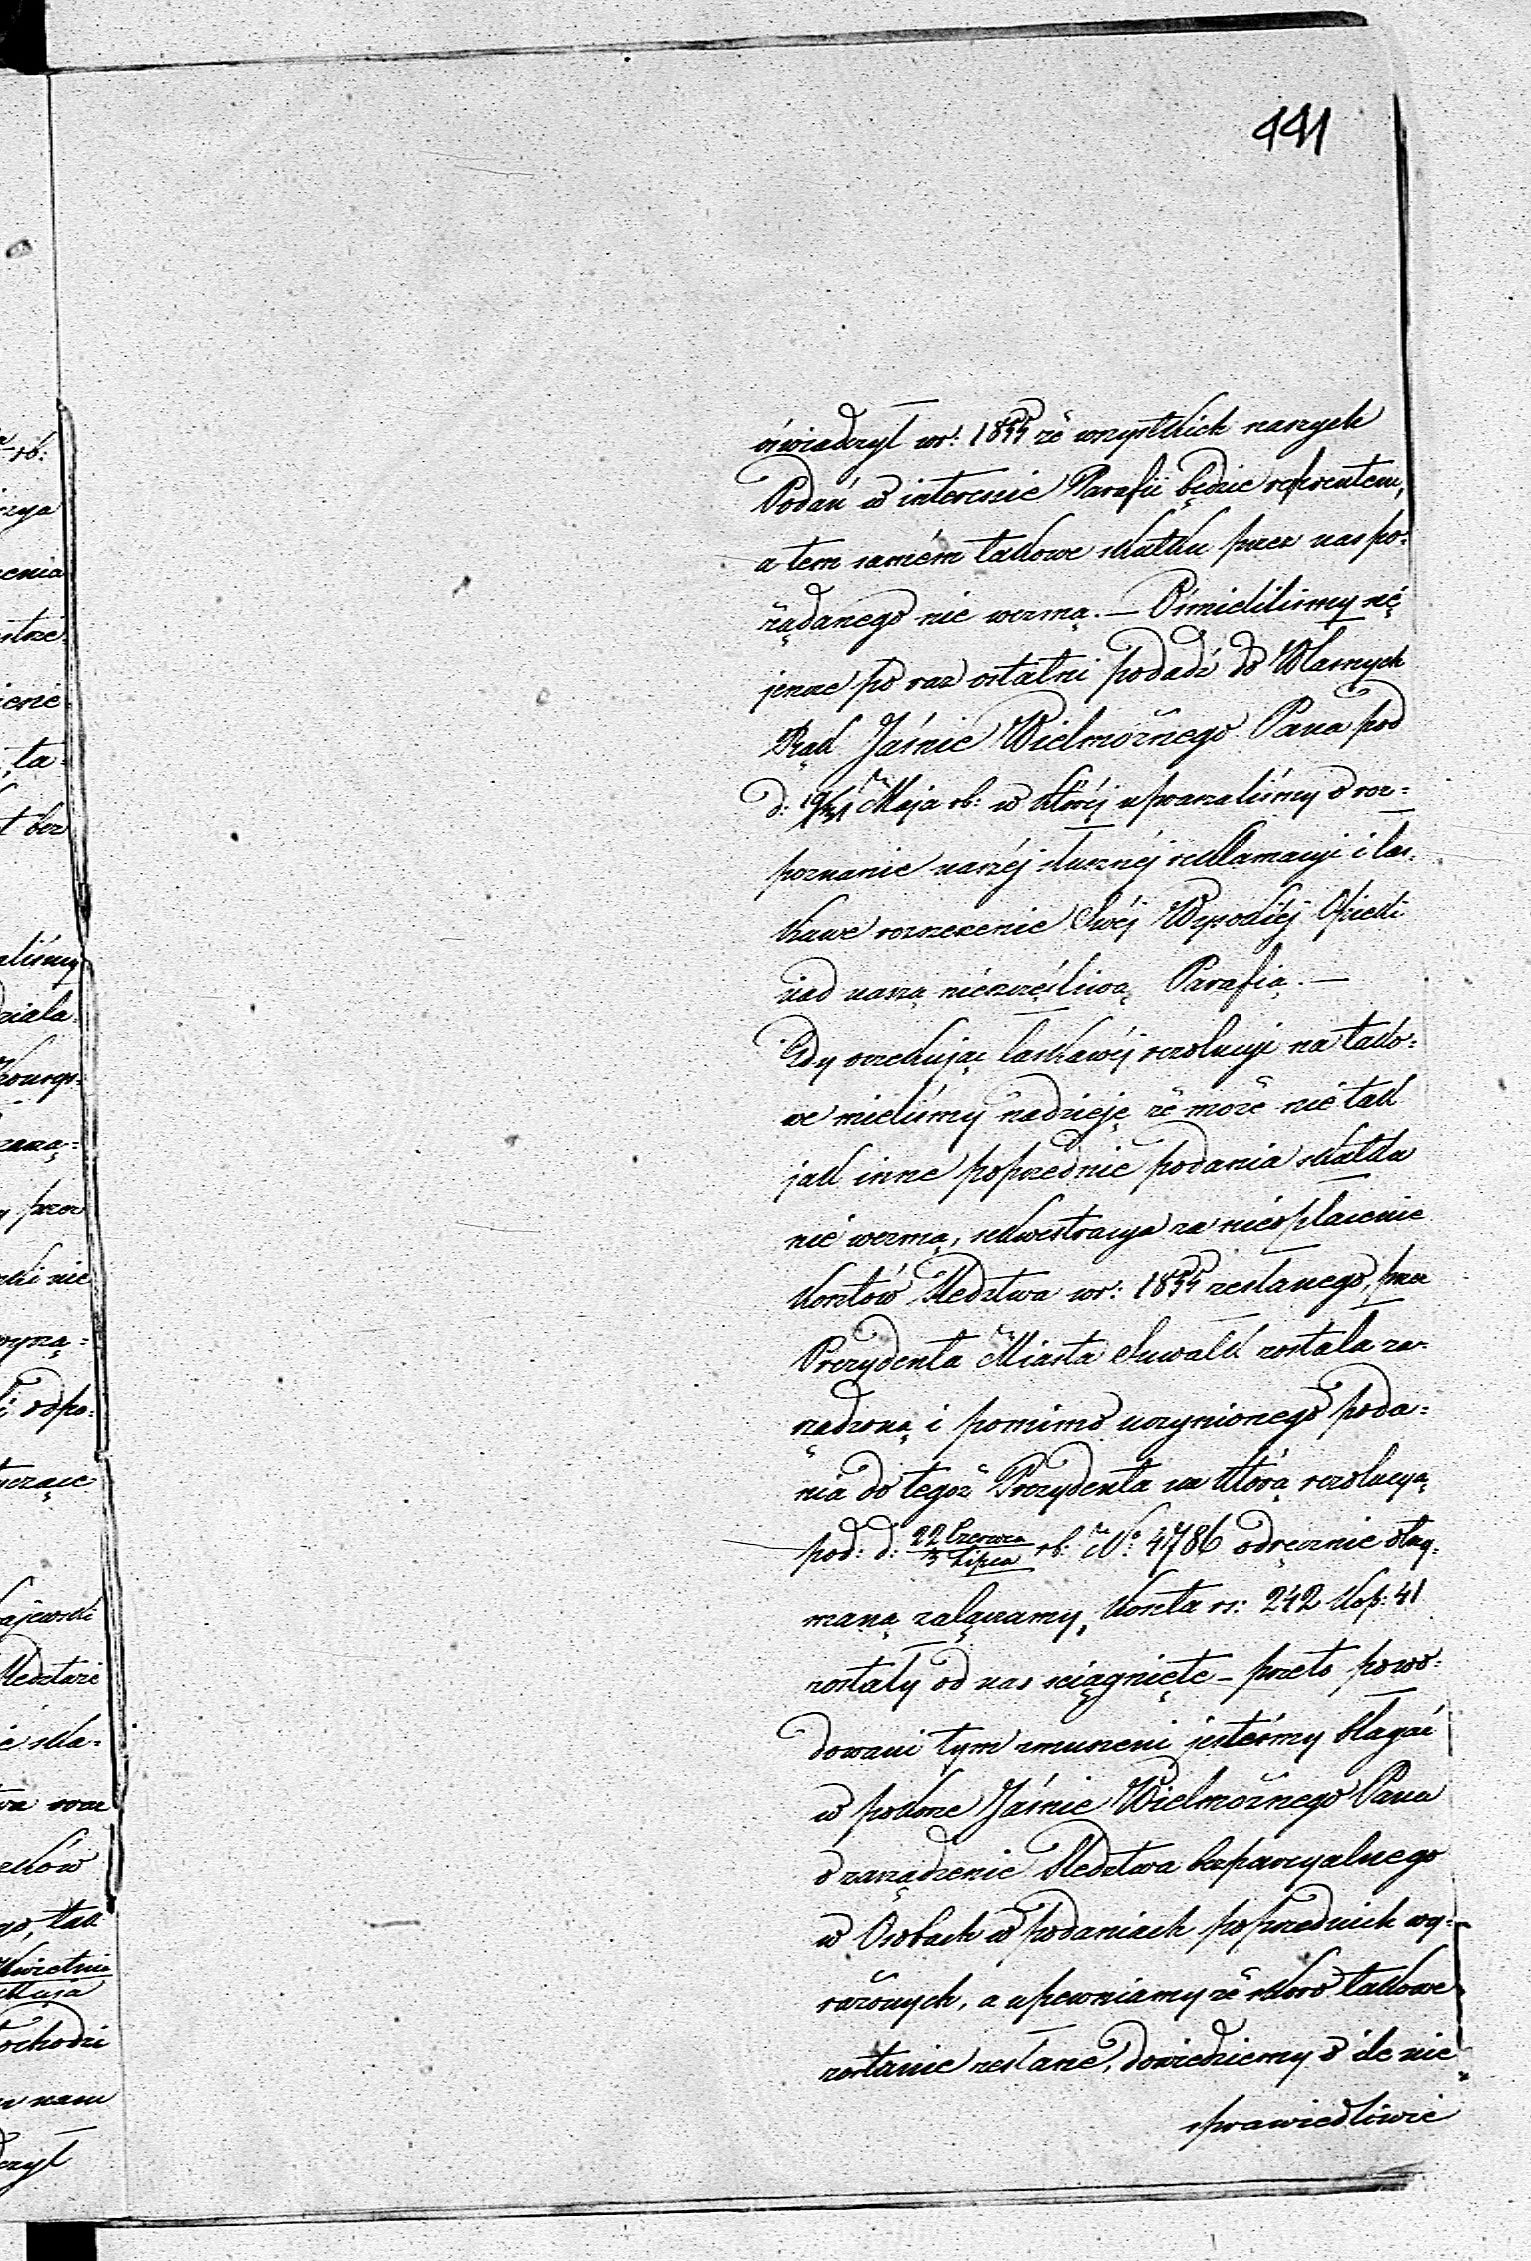 441
oświadczył w r: 1855 że wszystkich naszych
Podań w interessie Parafii będzie referentem,
a tem samém takowe skutku przez nas po-
żądanego nie wezmą. — Ośmieliliśmy się
jeszcze po raz ostatni podadź do Własnych
Rąk Jaśnie Wielmożnego Pana pod
d: 19/31 Maja rb: w któréj upraszaliśmy o roz=
poznanie naszéj słusznéj reklamacyi i łas-
kawe rozrzecenie Swéj Wysokiéj Opieki
nad naszą niészczęśliwą Parafią. —
Gdy oczekując łaskawéj rezolucyi na tako-
we mieliśmy nadzieję że może nié tak
jak inne poprzednie podania skutku
nié wezmą, sekwestracya za niéopłacenie
kosztów Śledztwa w r: 1855 zesłanego, przez
Prezydenta Miasta Suwałk została za-
rządzoną i pomimo uczynionego poda=
nia do tegoż Prezydenta na którą rezolucyą
pod: d: 22 Czerwca/3 Lipca rb: No: 4786 odręcznie otrzy-
maną załączamy, koszta rs: 242 kop: 41
zostały od nas sciągnięte – przeto powo-
dowani tym zmuszeni jesteśmy błagać
w pokorze Jaśnie Wielmożnego Pana
o zarządzenie Śledztwa bezparcyalnego
w Osobach w podaniach poprzednich wy-
rażonych, a upewniamy że skoro takowe
zostanie zesłane, dowiedziemy o ile nie-
sprawiedliwie
rb:
enia
ta-
bez
aliśmy
działa-
przez
nie
odpo-
ajewski
Kwietnia
Maja
ochodzi
nam